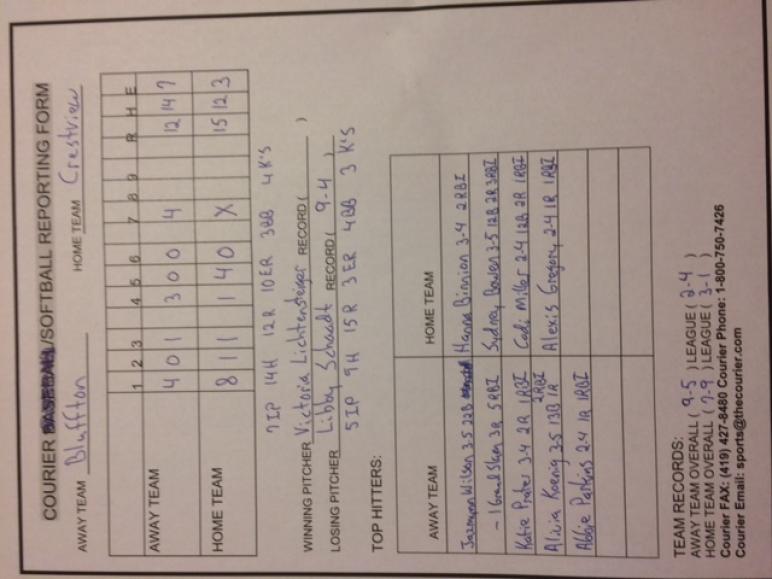 COURIER BASEBALL/SOFTBALL REPORTING FORM
AWAY TEAM Bluffton HOME TEAM Crestview
1 2 3 4 5 6 7 8 9 R H E
AWAY TEAM 4 0 1 3 0 0 4 12 14 7
HOME TEAM 8 1 1 1 4 0 X 15 12 3
7IP 14H 12R 10ER 3BB 4K'S
WINNING PITCHER Victoria Lichtensteiger RECORD ( )
LOSING PITCHER Libby Schaadt RECORD ( 9-4 )
5IP 9H 15R 3ER 4BB 3K'S
TOP HITTERS:
AWAY TEAM HOME TEAM
Jazmynn Wilson 3-5 22B Hanna Binnion 3-4 2RBI
- 1 Grand Slam 3R 5RBI Sydney Bowen 3-5 12B 2R 3RBI
Katie Prater 3-4 2R 1RBI Codi Miller 2-4 12B 2R 1RBI
Alivia Koenig 3-5 13B 1R 2RBI Alexis Gregory 2-4 1R 1RBI
Abbie Parkins 2-4 1R 1RBI
TEAM RECORDS:
AWAY TEAM OVERALL ( 9-5 ) LEAGUE ( 2-4 )
HOME TEAM OVERALL ( 7-9 ) LEAGUE ( 3-1 )
Courier FAX: (419) 427-8480 Courier Phone: 1-800-750-7426
Courier Email: sports@thecourier.com